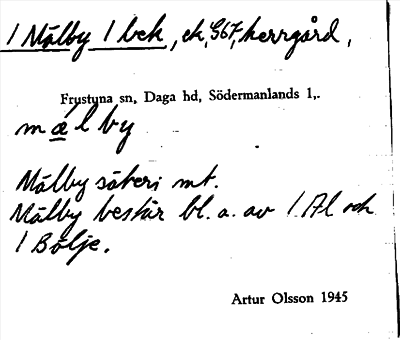 1 Målby 1 bek, ek, G67, herrgård,
Frustuna sn, Daga hd, Södermanlands l,.
målby
Målby säteri mt.
Målby består bl. a. av 1 Al och
1 Bölje.
Artur Olsson 1945